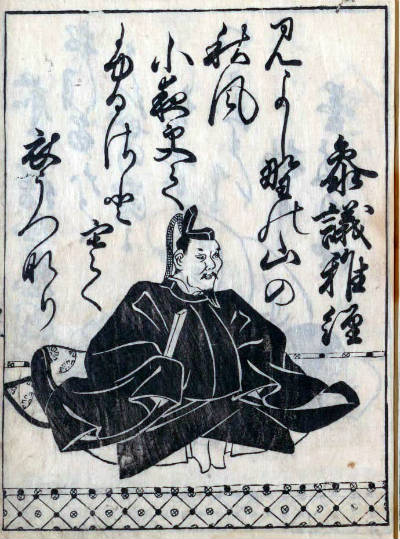 參議雅經
見よし野の山の
秋風
小夜更て
ふるさと寒く
衣うつなり